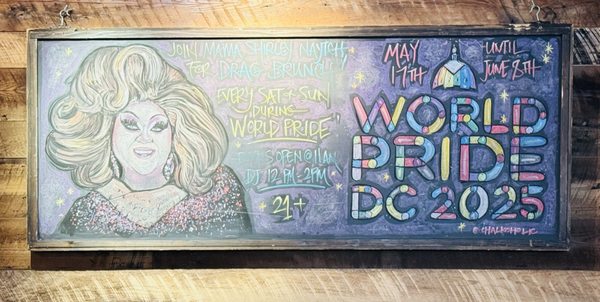 JOIN MAMA SHIRLEY NAYTCH
FOR DRAG BRUNCH
EVERY SAT + SUN
DURING
WORLD PRIDE
OPEN @ 11AM
DJ 12PM-2PM
21+
MAY
17TH
UNTIL
JUNE 8TH
WORLD
PRIDE
DC 2025
@CHALKOHOLIC